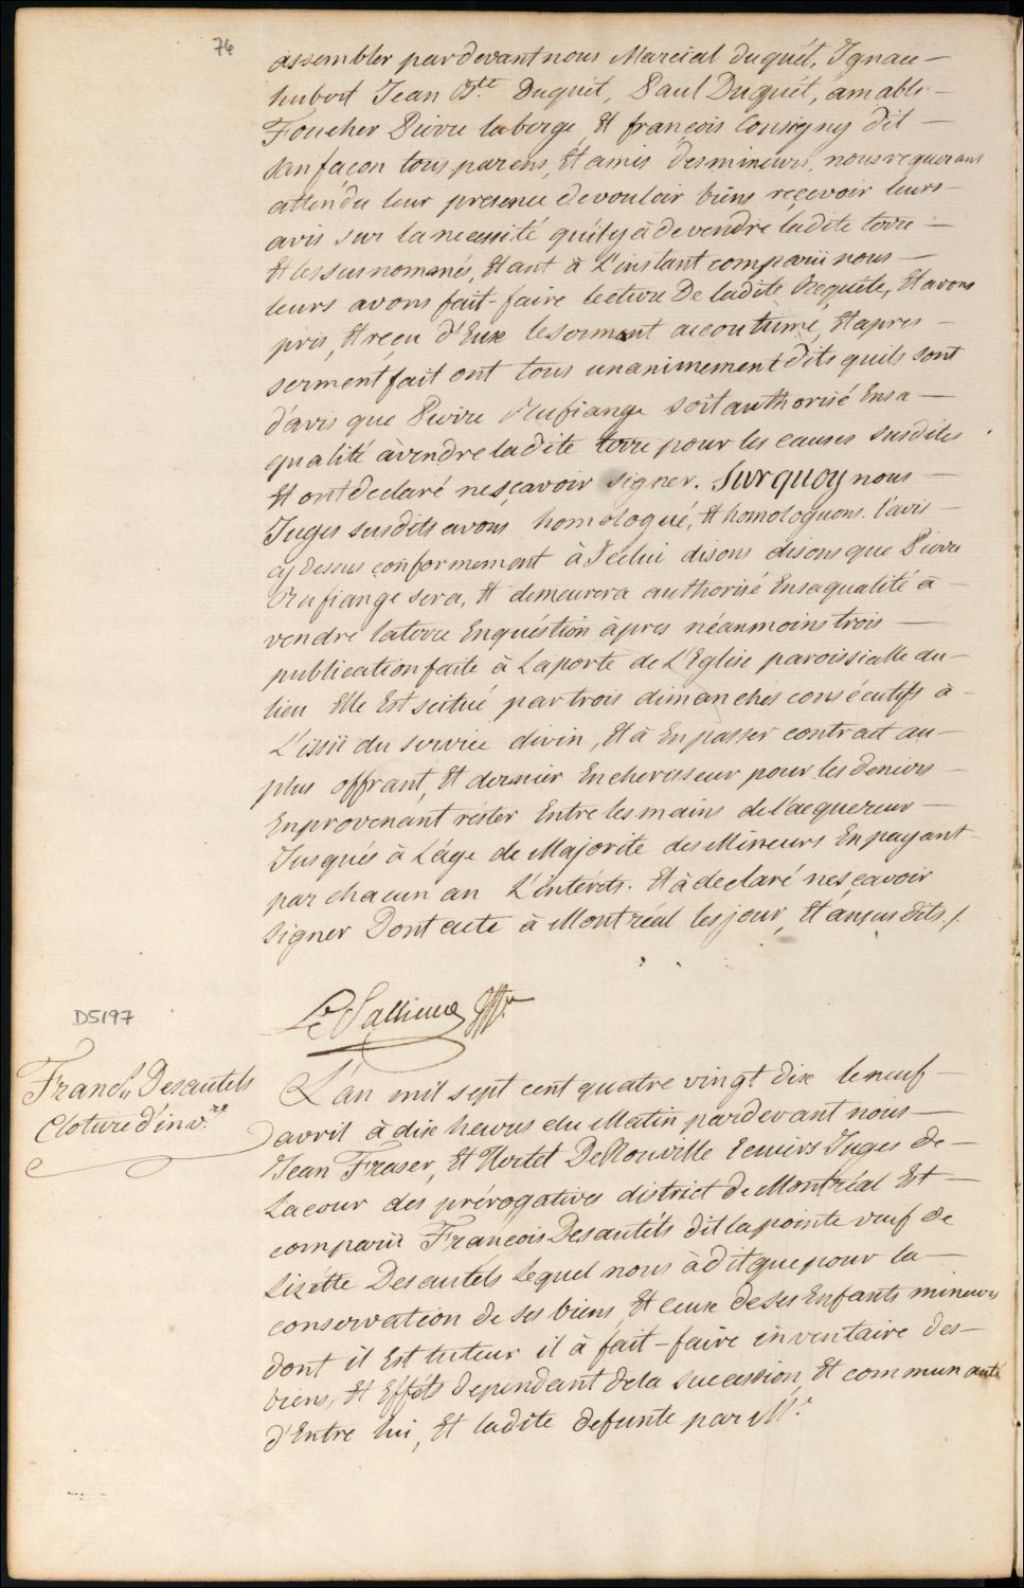 76
assembler pardevant nous Marcial duquét, Ignace
hubert Jean Bte. Duquét, Paul Duquét, amable
Foucher Pierre laberge, Et françois Consigny dit
San façon tous parens, Et amis des mineurs, nous requerant
attendu leur presence de vouloir biens reçevoir leurs
avis sur la necessité quil y à de vendre ladite terre
Et les sus nommés, Etant à L'instant comparûi nous
leurs avons fait-faire lecture De ladite Requête, Et avons
pris, Et reçu d'Eux le serment accoutumé, Et apres
serment fait ont tous unanimement dits quils sont
d'avis que Pierre Rufiange soit authorisé Ensa
qualité à vendre ladite terre pour les causes susdites
Et ont declaré ne sçavoir signer. Surquoy nous
Juges susdits avons homologué, Et homologuons l'avis
cy dessus conformement à Icelui disons disons que Pierre
Rufiange sera, Et demeurera authorisé Ensaqualité à
vendre laterre Enquéstion àpres néanmoins trois
publication faite à Laporte de L'Eglise paroissialle du
lieu Elle Est scitué par trois dimanches consécutifs à
L'issûi du service divin, Et à En passer contract au
plus offrant, Et dernier Encherisseur pour les deniers
Enprovenant réster Entre les mains de l'acquereur
Jusqués à L'âge de Majorité des Mineurs En payant
par chacun an L'intérêts. Et à declaré ne sçavoir
signer Dont acte à Montréal les jour, Et an susdits./.
D5197
Franc.s Desautels
Cloture d'inv.re
L'an mil sept cent quatre vingt dix le neuf
avril à dix heures du Matin pardevant nous
Jean Fraser, Et Hertel DeRouville Ecuiers Juges de
Lacour des prérogatives district de Montréal Et
comparûi François Desautéls dit lapointe veuf de
Lizétte Desautéls Lequel nous à dit que pour la
conservation de ses biens, Et ceux de ses Enfants mineurs
dont il Est tuteur il à fait-faire inventaire des
biens, Et Efféts dependant dela succession, Et communauté
d'Entre lui, Et ladite defunte par Mr.